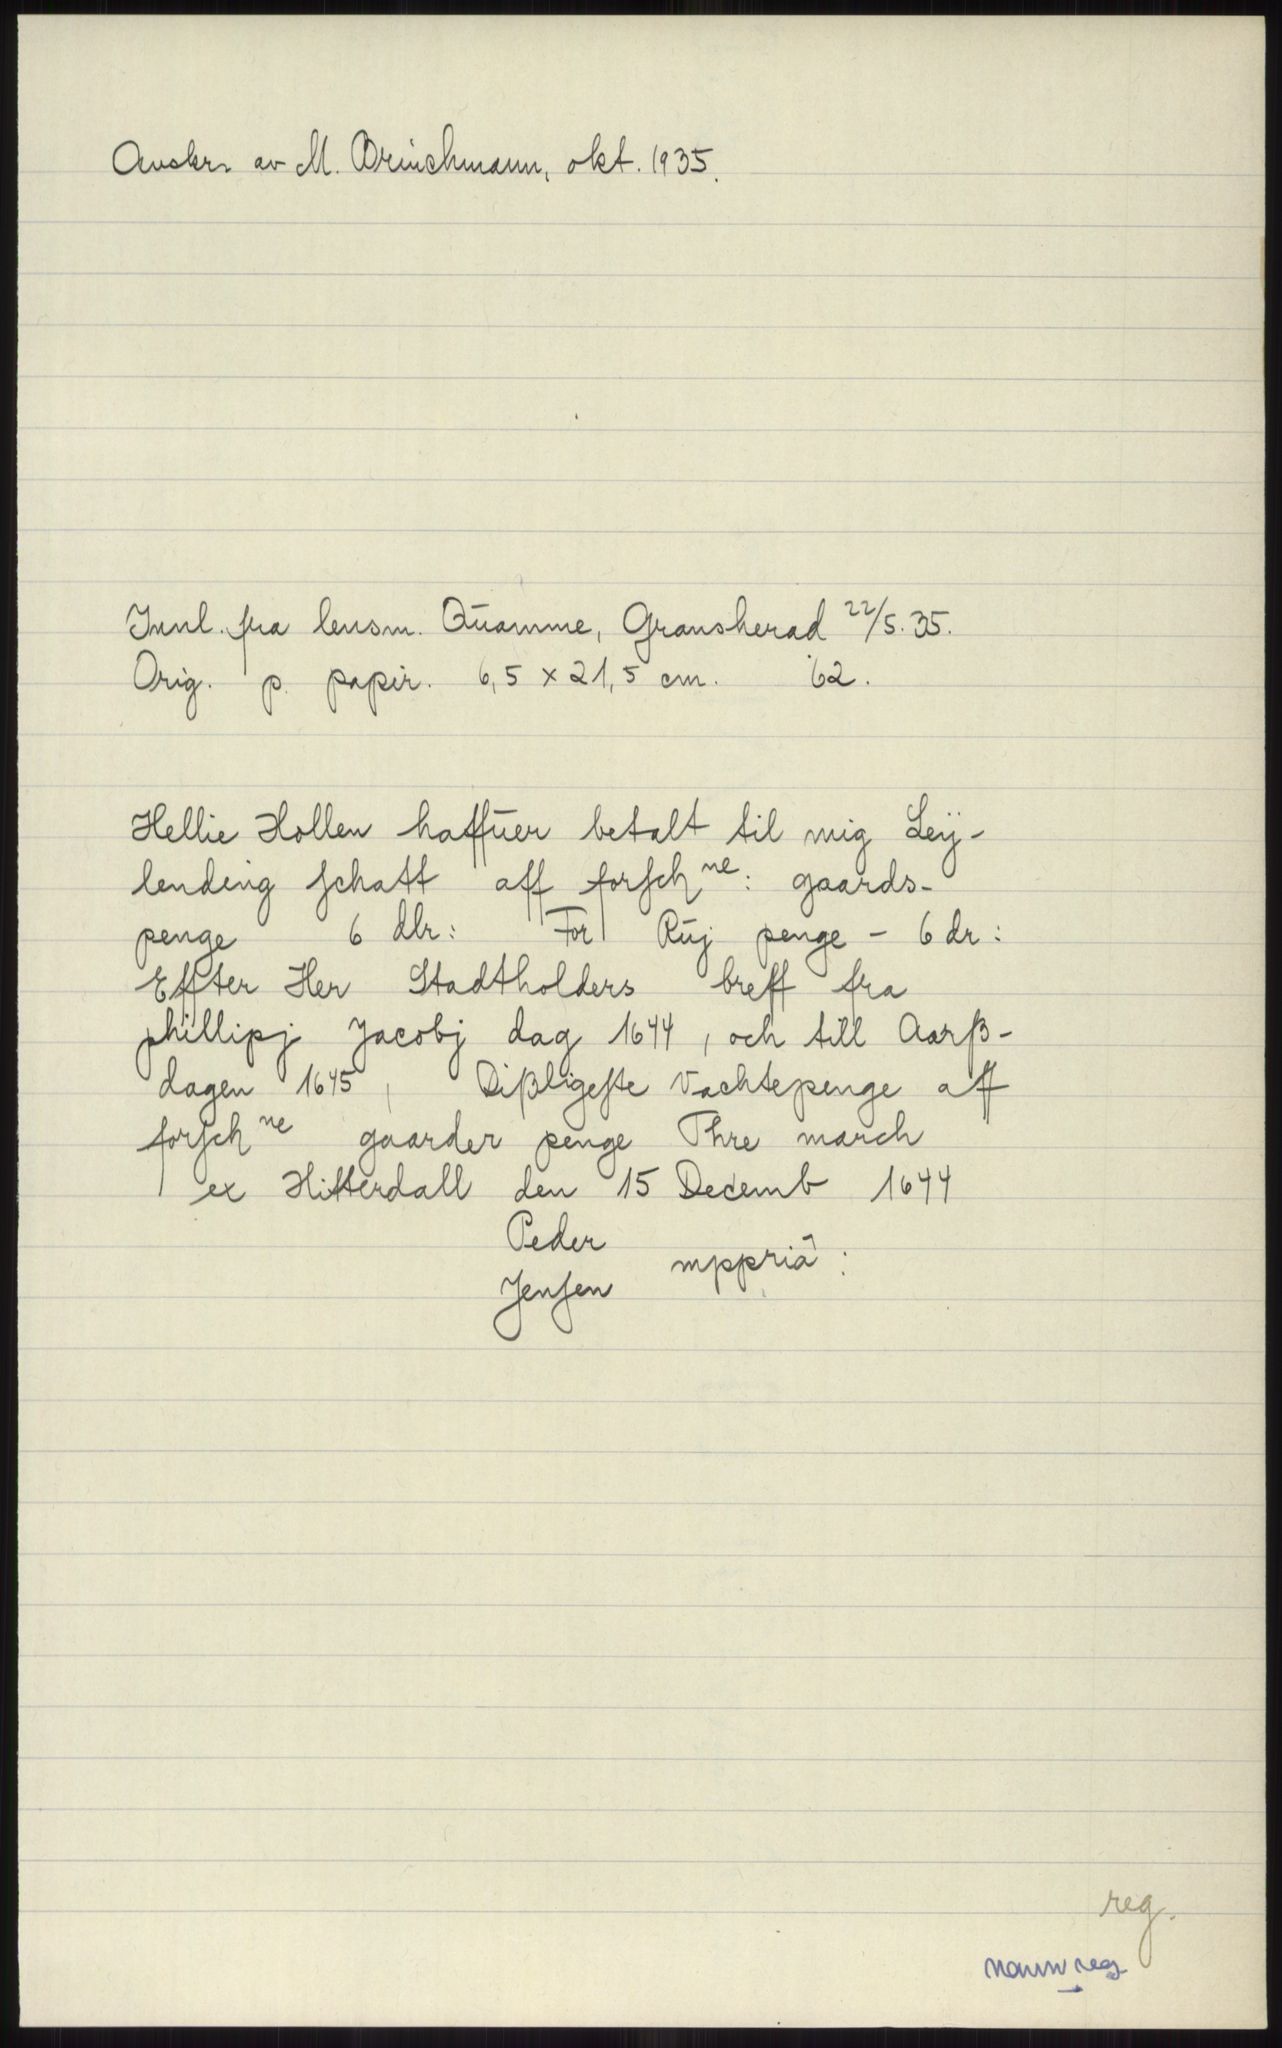 Avskr. av M. Brinchmann, okt. 1935.
Innl. fra lensm. Quamme, Gransherad 22/5.35.
Orig. p. papir. 6,5 x 21,5 cm. 62.
Hellie Hollen haffuer betalt til mig Leÿ-
lending schatt aff forschne: gaards-
penge 6 dlr: For Rüj penge - 6 dr:
Effter Her Stadtholders breff fra
phillipj Jacobj dag 1644, och till Aarß-
dagen 1645, Dißligeste Vachtepenge aff
forschne gaarder penge Thre march
ex Hitterdall den 15 Decemb 1644
Peder
Jensen mppriâ:
reg.
navnreg